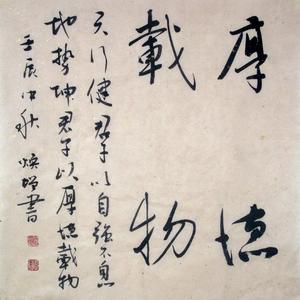 厚德
載物
天行健君子以自強不息
地勢坤君子以厚德載物
壬辰仲秋 書